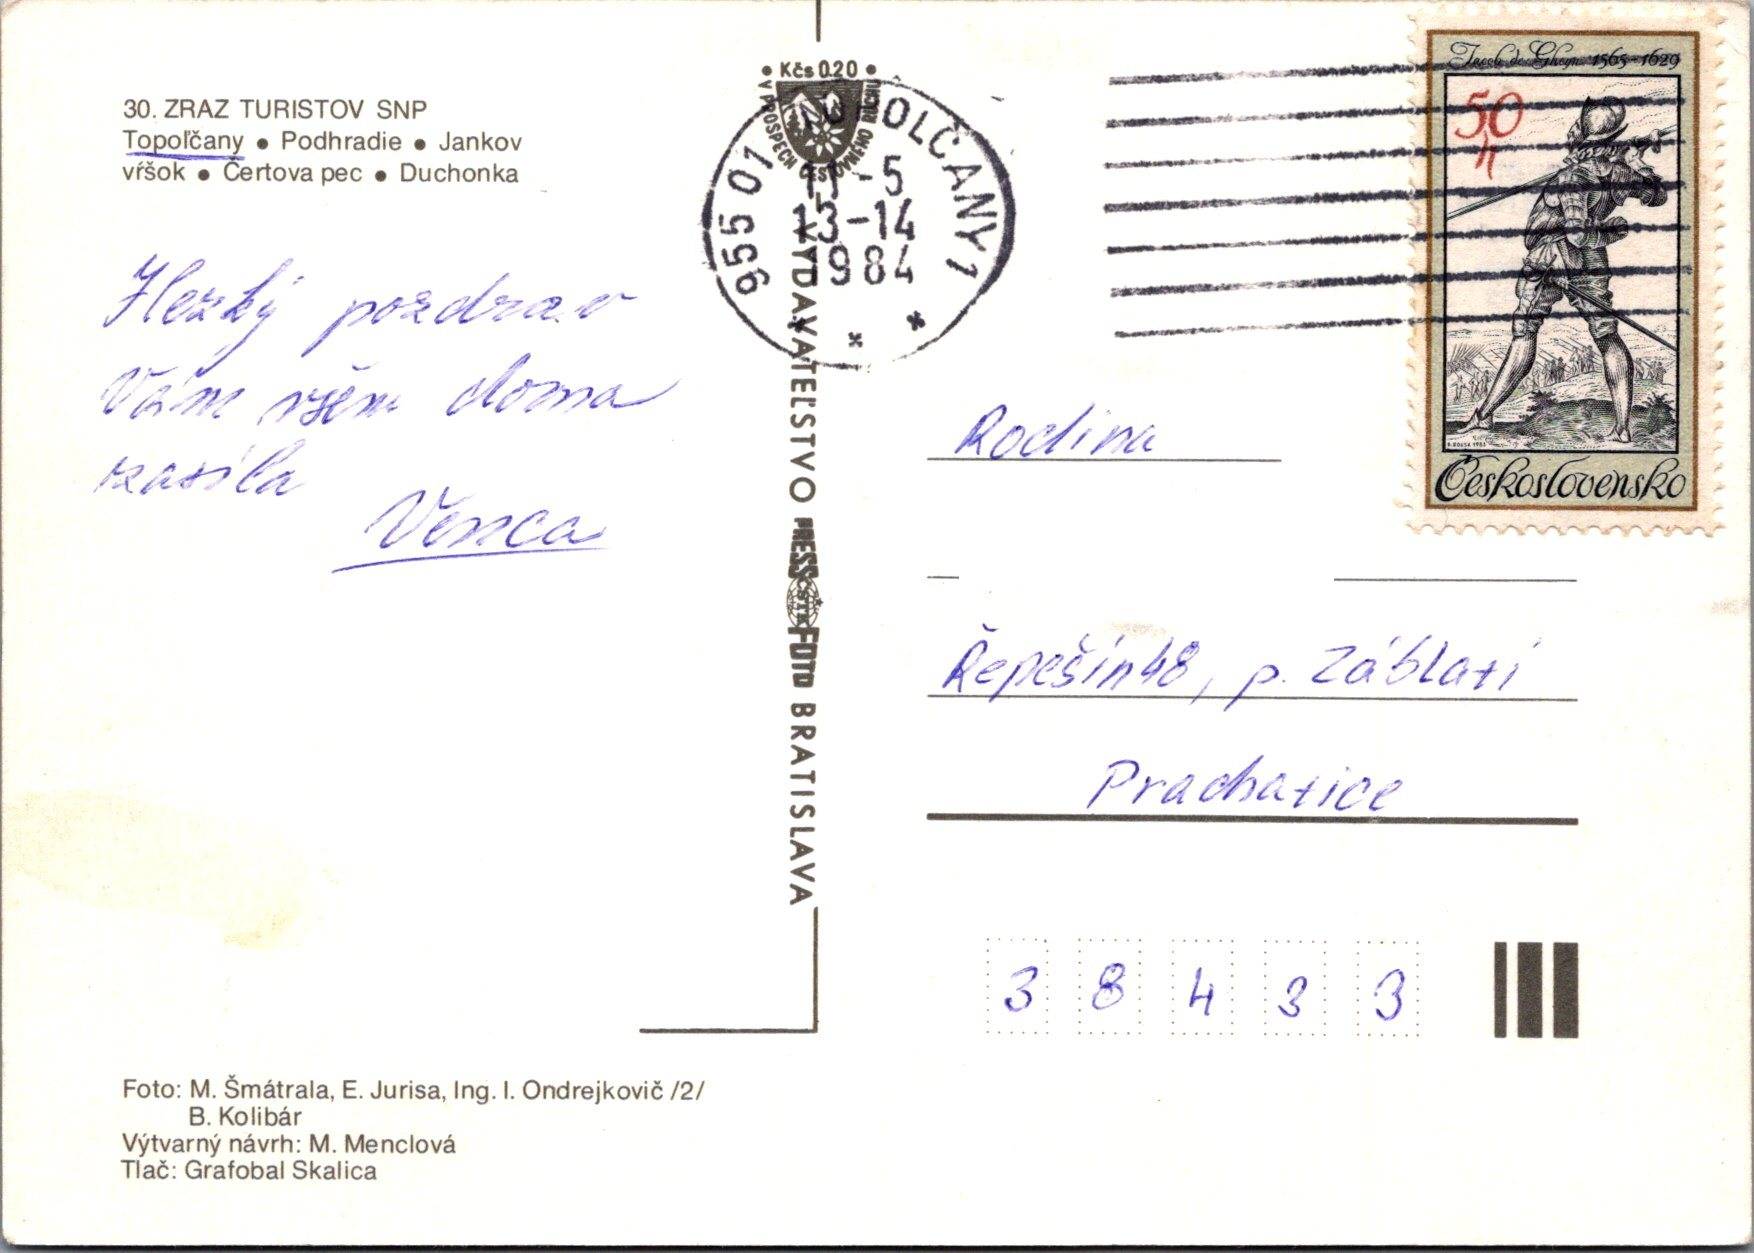 30. ZRAZ TURISTOV SNP
Topoľčany ● Podhradie ● Jankov
vŕšok ● Čertova pec ● Duchonka
Hezký pozdrav
Vám všem doma
zasílá
Venca
Foto: M. Šmátrala, E. Jurisa, Ing. I. Ondrejkovič /2/
B. Kolibár
Výtvarný návrh: M. Menclová
Tlač: Grafobal Skalica
• Kčs 0.20 •
V PROSPECH CESTOVNÉHO RUCHU
VYDAVATEĽSTVO PRESS ČSTK FOTO BRATISLAVA
955 01 TOPOĽČANY 1
11-5
13-14
1984
Jacob de Gheyn 1565-1629
50
h
Československo
Rodina
Řepešín 48, p. Záblatí
Prachatice
3 8 4 3 3